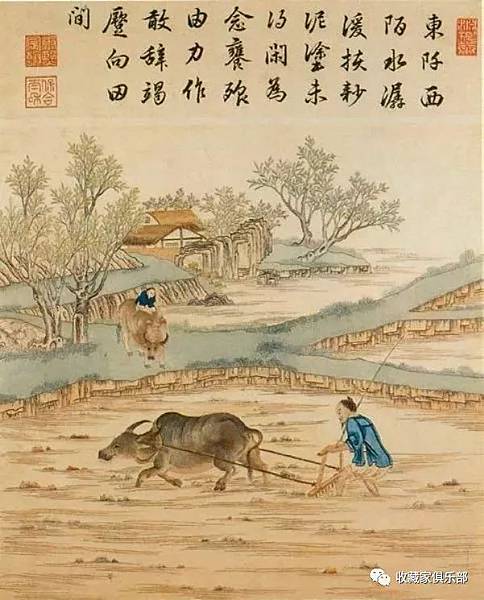 東阡西
陌水潺
湲扶耖
泥塗未
得閑為
念饔飧
由力作
敢辞竭
蹷向田
間
收藏家俱乐部